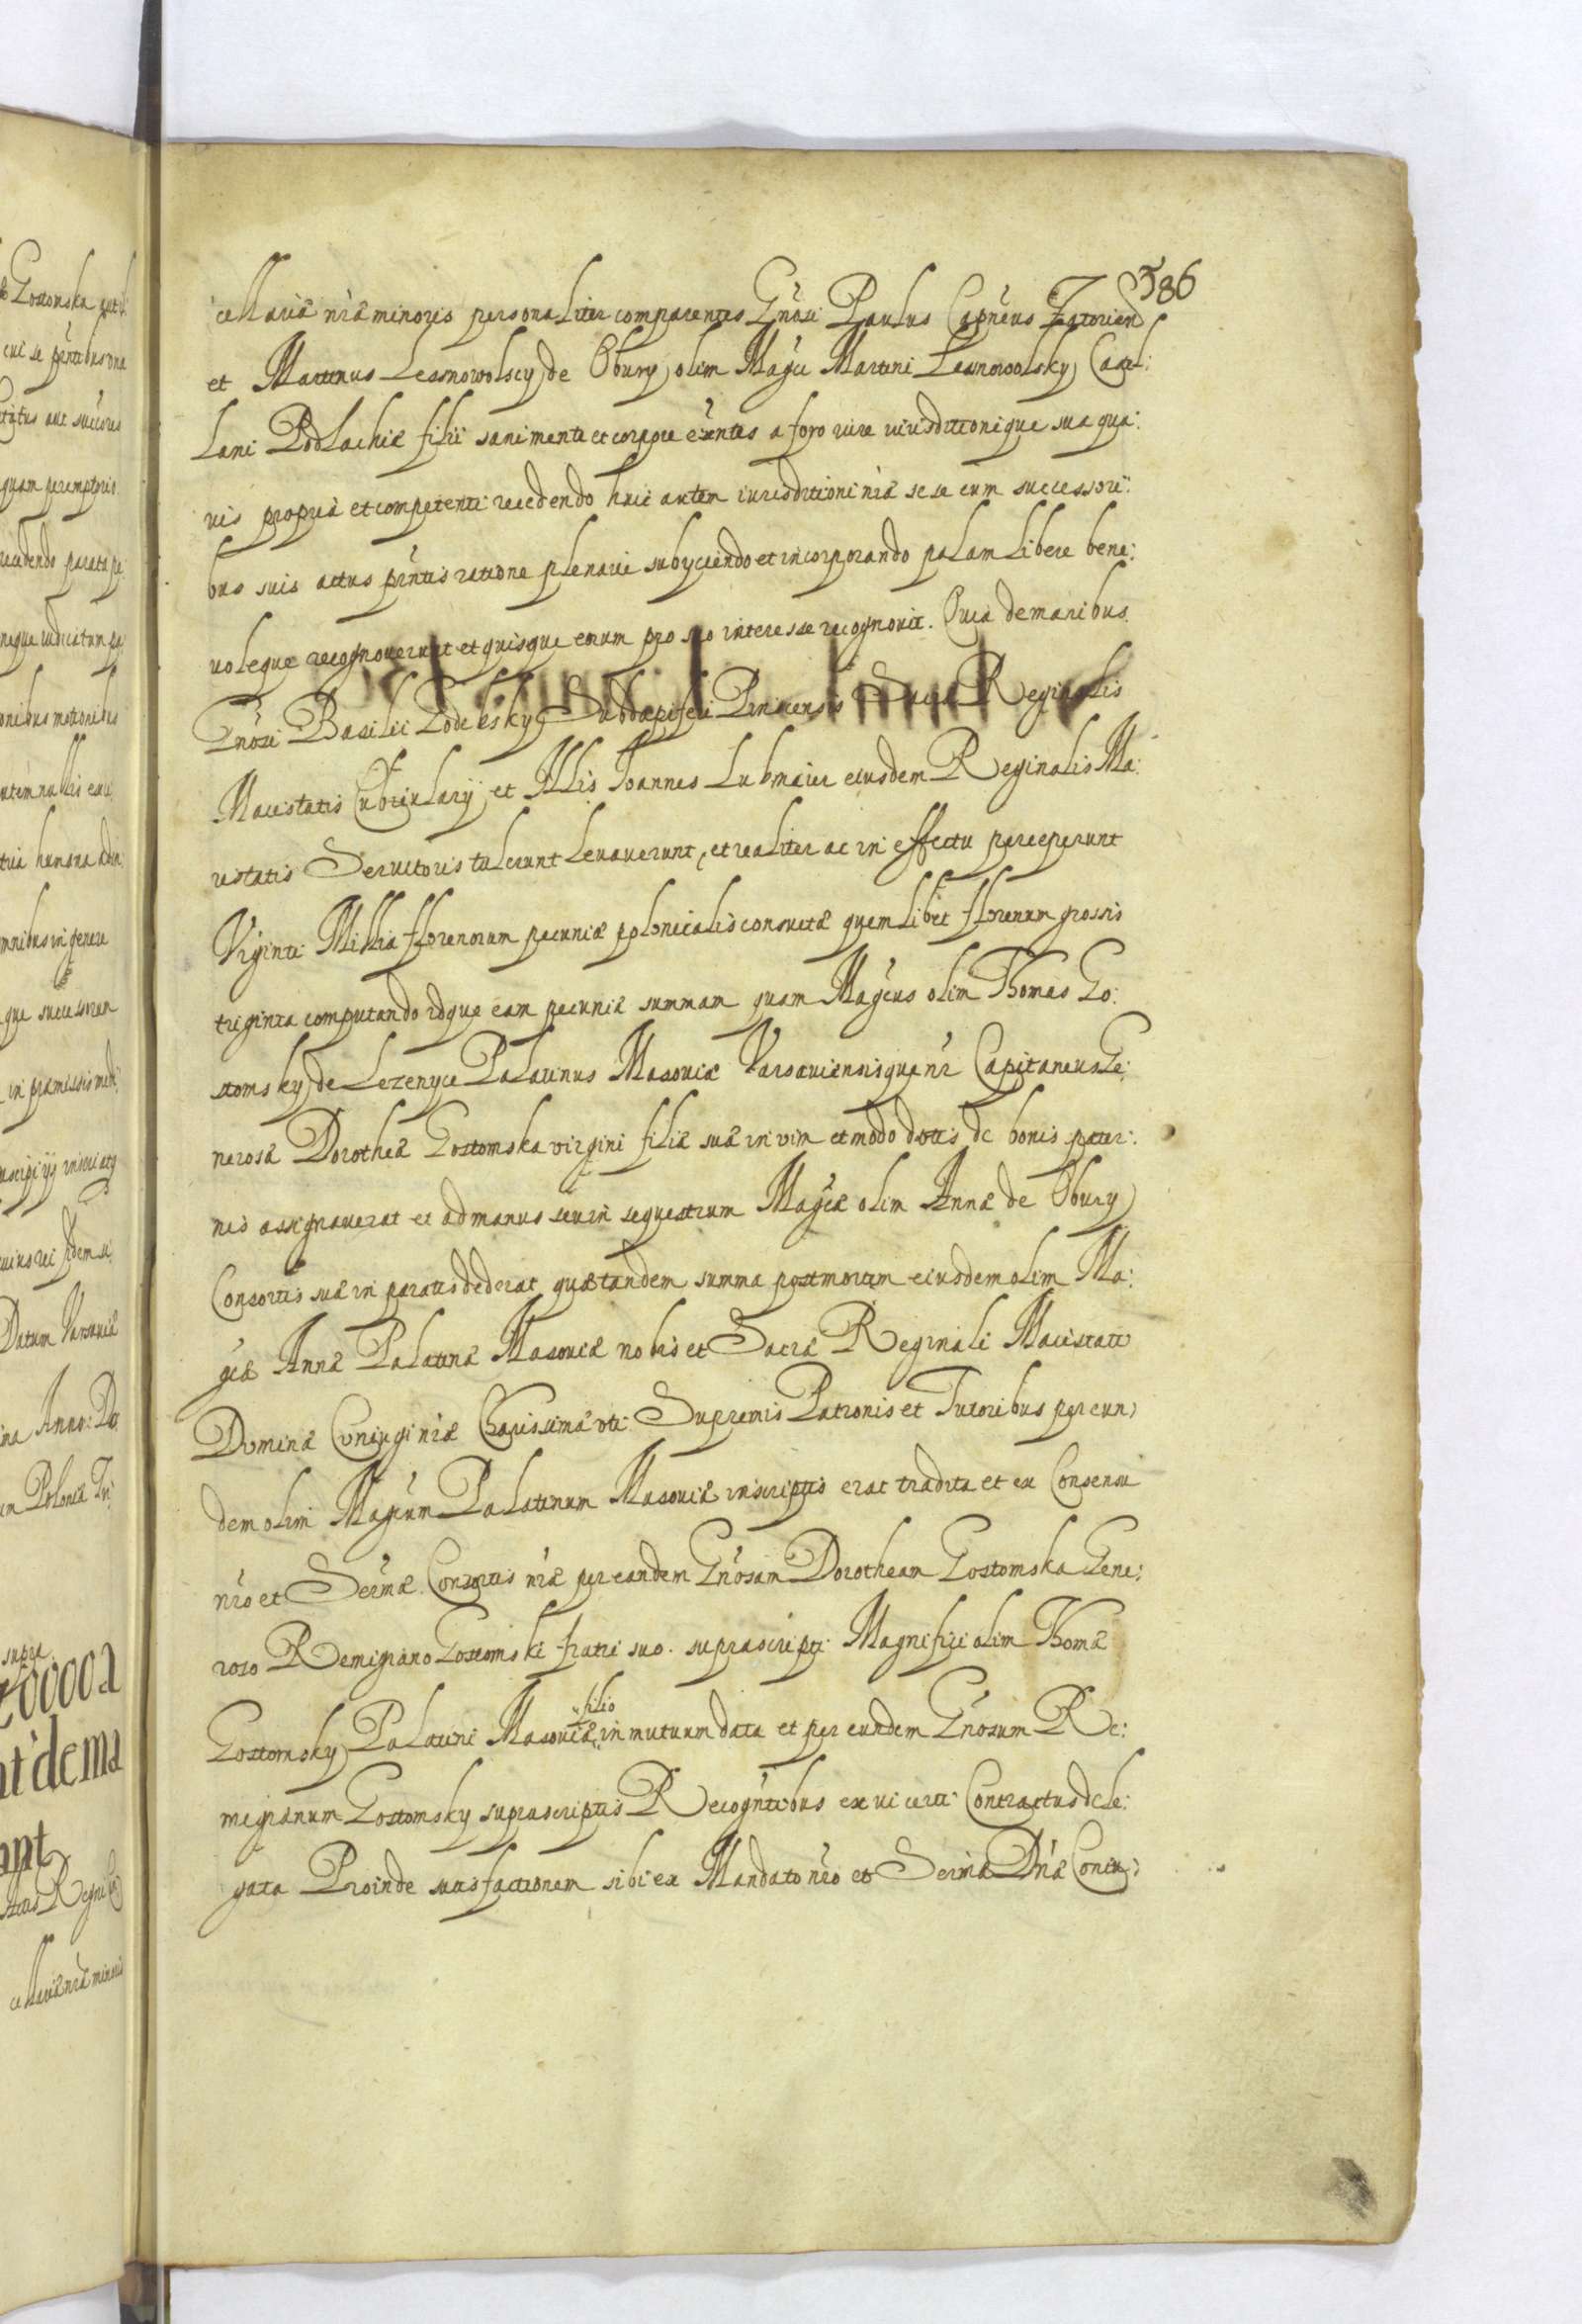 386
cellariæ nr̃æ minoris personaliter comparentes Gñosi Paulus Capñeus Zatorien
et Martinus Lesnowolscy de Obury olim Mag̃ci Martini Lesnowolsky Castel:
lani Podlachiæ filii sani mente et corpore exñtes a foro iure iurisditionique sua qua:
vis propria et competenti recedendo huic autem iurisditioni nr̃æ sese cum successori:
bus suis actus pñtis ratione plenarie subyciendo et incorporando palam libere bene:
voleque recognoverunt et quisque eorum pro suo interesse recognovit. Quia de manibus
Gñosi Basilii Subdapiferi Pinscensis Sacræ Reginalis
Maiestatis Cubicularÿ et Joannes Lubmaier eiusdem Reginalis Ma:
iestatis Servitoris tulerunt levaverunt, et realiter ac in effectu perceperunt
Viginti Millia florenorum pecuniæ polonicalis consuetæ quemlibet florenum grossis
triginta computando idque eam pecuniæ summam quam Mag̃cus olim Thomas Go:
stomsky de Lezenyce Palatinus Masoviæ Varsaviensisque nr̃ Capitaneus Ge:
nerosæ Dorotheæ Gostomska virgini filiæ suæ in vim et modo dotis de bonis pater:
nis assignaverat et ad manus seu in sequestrum Mag̃cæ olim Annæ de Obury
Consortis suæ in paratis dederat quæ tandem summa post mortem eiusdem olim Ma:
g̃cæ Annæ Palatinæ Masoviæ nobis et Sacræ Reginali Maiestati
Dominæ Coniugi nr̃æ Charissimæ uti Supremis Patronis et Tutoribus per eun:
dem olim Mag̃cum Palatinum Masoviæ inscriptis erat tradita et ex Consensu
nr̃o et Serm̃æ Consortis nr̃æ per eandem Gñosam Dorotheam Gostomska Gene:
roso Remigiano Gostomski fratri suo suprascripti Magnifici olim Thomæ
Gostomsky Palatini Masoviæ filio in mutuum data et per eundem Gñosum Re:
migianum Gostomsky suprascriptis Recogñtibus ex vi certi Contractus dele:
gata Proinde satisfactionem sibi ex Mandato nr̃o et Serm̃æ Dñæ Coniu: